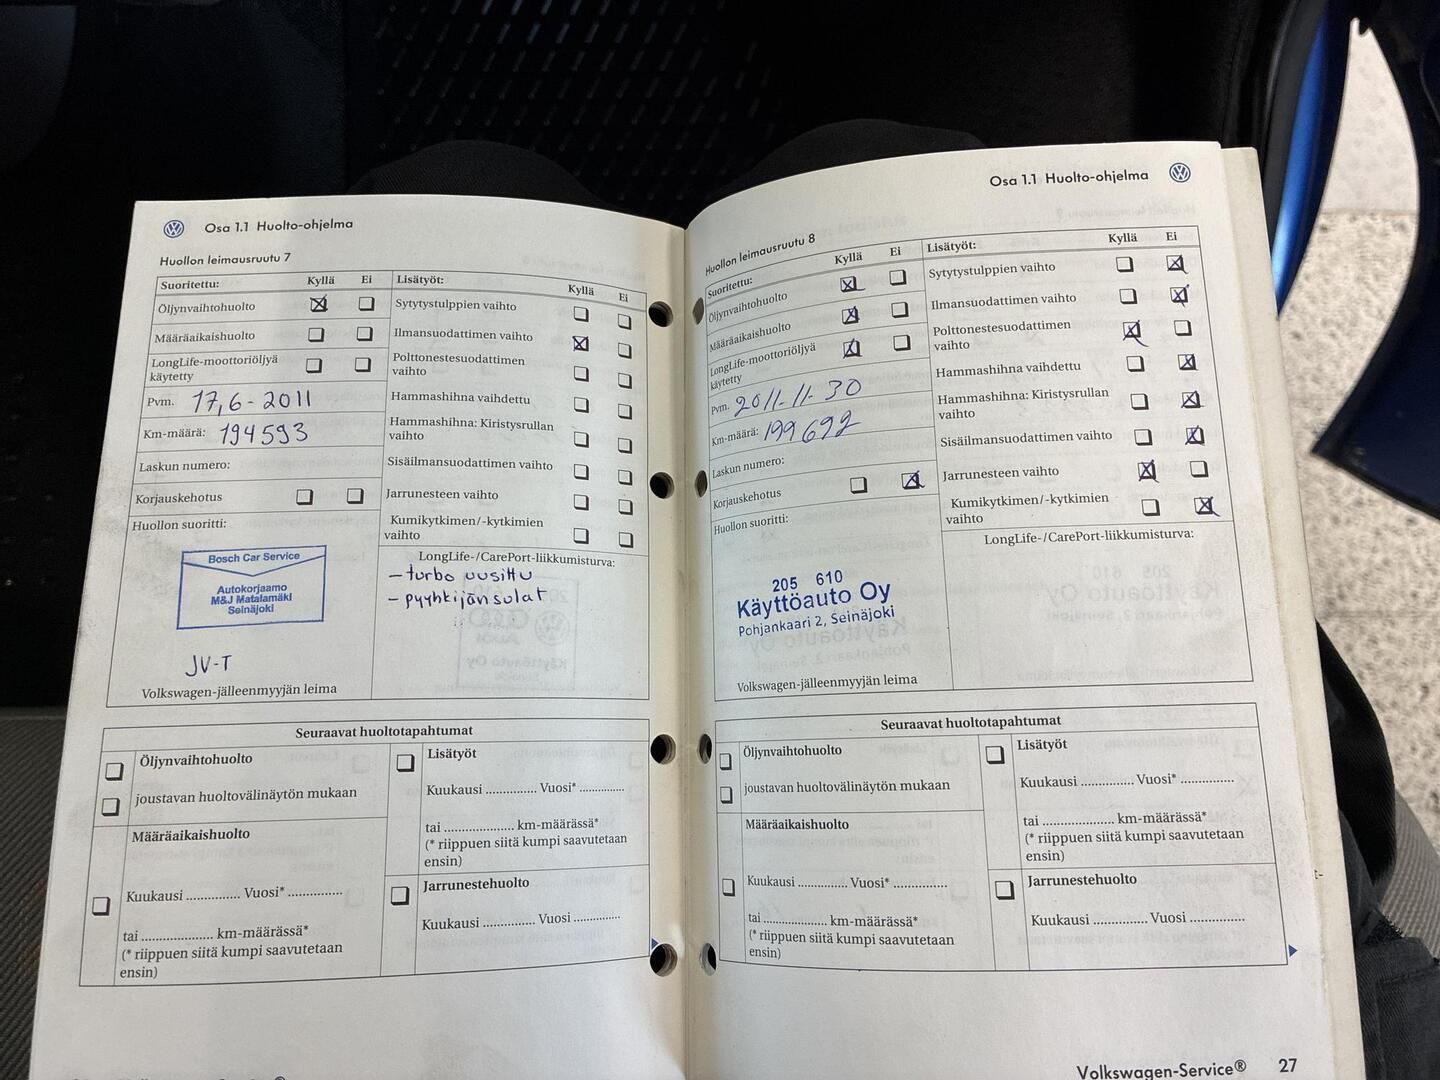 Osa 1.1 Huolto-ohjelma
Huollon leimausruutu 7
Suoritettu: Kyllä Ei
Öljynvaihtohuolto
Määräaikaishuolto
LongLife-moottoriöljyä
käytetty
Pvm. 17,6-2011
Km-määrä: 194593
Laskun numero:
Korjauskehotus
Huollon suoritti:
Bosch Car Service
Autokorjaamo
M&J Matalamäki
Seinäjoki
JV-T
Volkswagen-jälleenmyyjän leima
Lisätyöt: Kyllä Ei
Sytytystulppien vaihto
Ilmansuodattimen vaihto
Polttonestesuodattimen
vaihto
Hammashihna vaihdettu
Hammashihna: Kiristysrullan
vaihto
Sisäilmansuodattimen vaihto
Jarrunesteen vaihto
Kumikytkimen/-kytkimien
vaihto
LongLife-/CarePort-liikkumisturva:
- turbo uusittu
- pyyhkijänsulat
Seuraavat huoltotapahtumat
Öljynvaihtohuolto
joustavan huoltovälinäytön mukaan
Määräaikaishuolto
Kuukausi ........... Vuosi* ..............
tai .................... km-määrässä*
(* riippuen siitä kumpi saavutetaan
ensin)
Lisätyöt
Kuukausi .............. Vuosi* ............
tai .................... km-määrässä*
(* riippuen siitä kumpi saavutetaan
ensin)
Jarrunestehuolto
Kuukausi ............... Vuosi .............
Osa 1.1 Huolto-ohjelma
Huollon leimausruutu 8
Suoritettu: Kyllä Ei
Öljynvaihtohuolto
Määräaikaishuolto
LongLife-moottoriöljyä
käytetty
Pvm. 2011-11-30
Km-määrä: 199692
Laskun numero:
Korjauskehotus
Huollon suoritti:
205 610
Käyttöauto Oy
Pohjankaari 2, Seinäjoki
Volkswagen-jälleenmyyjän leima
Lisätyöt: Kyllä Ei
Sytytystulppien vaihto
Ilmansuodattimen vaihto
Polttonestesuodattimen
vaihto
Hammashihna vaihdettu
Hammashihna: Kiristysrullan
vaihto
Sisäilmansuodattimen vaihto
Jarrunesteen vaihto
Kumikytkimen/-kytkimien
vaihto
LongLife-/CarePort-liikkumisturva:
Seuraavat huoltotapahtumat
Öljynvaihtohuolto
joustavan huoltovälinäytön mukaan
Määräaikaishuolto
Kuukausi ........... Vuosi* ..............
tai .................... km-määrässä*
(* riippuen siitä kumpi saavutetaan
ensin)
Lisätyöt
Kuukausi .............. Vuosi* ..............
tai .................... km-määrässä*
(* riippuen siitä kumpi saavutetaan
ensin)
Jarrunestehuolto
Kuukausi ............... Vuosi ...............
Volkswagen-Service® 27